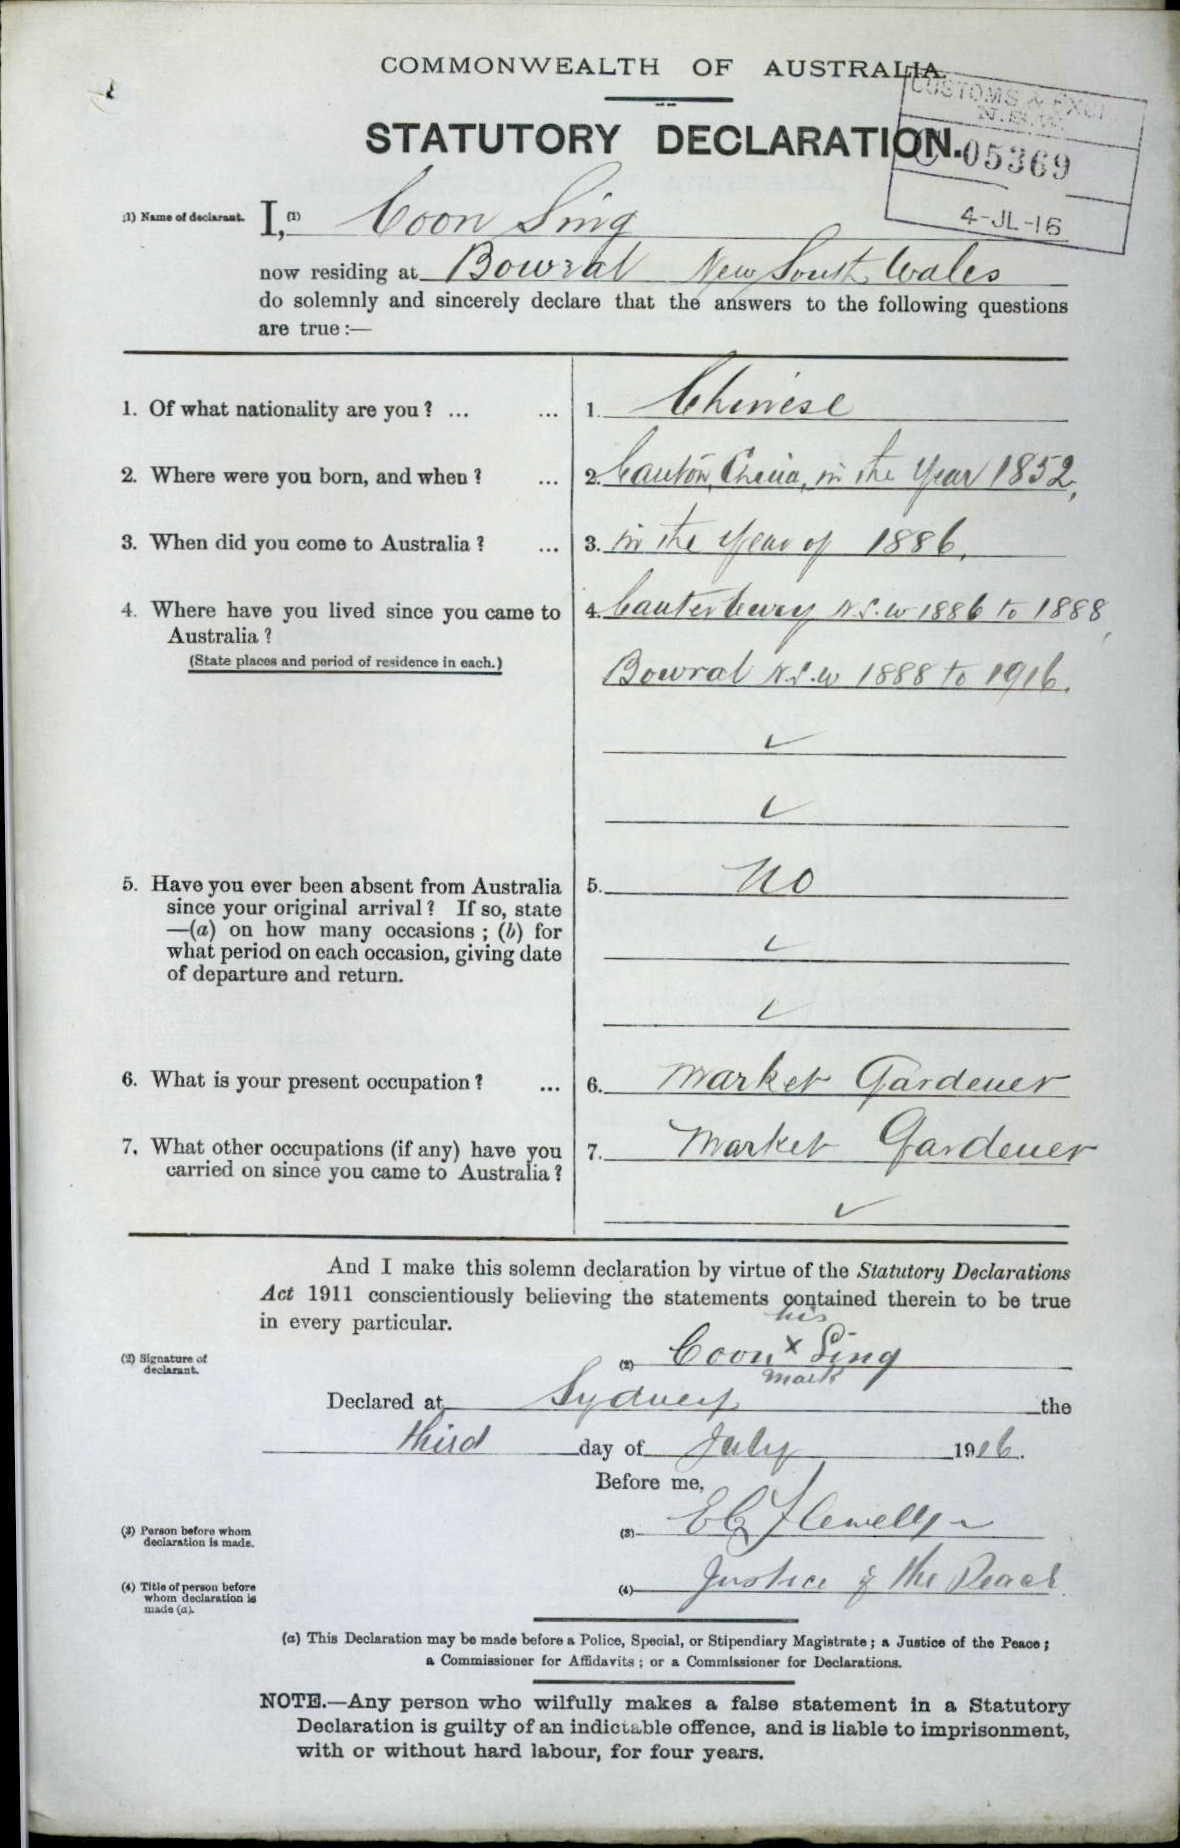 COMMONWEALTH OF AUSTRALIA.
CUSTOMS & EXC
N.S.W.
STATUTORY DECLARATION.
C 05369
4-JL-16
(1) Name of declarant. I, (1) Coon Sing
now residing at Bowral New South Wales
do solemnly and sincerely declare that the answers to the following questions
are true:—
1. Of what nationality are you? ... ... 1. Chinese
2. Where were you born, and when? ... 2. Canton, China, in the Year 1852,
3. When did you come to Australia? ... 3. in the Year of 1886.
4. Where have you lived since you came to 4. Canterbury N.S.W 1886 to 1888,
Australia?
(State places and period of residence in each.) Bowral N.S.W 1888 to 1916.
5. Have you ever been absent from Australia 5. No
since your original arrival? If so, state
—(a) on how many occasions; (b) for
what period on each occasion, giving date
of departure and return.
6. What is your present occupation? ... 6. Market Gardener
7. What other occupations (if any) have you 7. Market Gardener
carried on since you came to Australia?
And I make this solemn declaration by virtue of the Statutory Declarations
Act 1911 conscientiously believing the statements contained therein to be true
in every particular.
his
(2) Signature of declarant. (2) Coon x Sing
mark
Declared at Sydney the
third day of July 1916.
Before me,
(3) Person before whom declaration is made. (3) E C Llewellyn
(4) Title of person before whom declaration is made (a). (4) Justice of the Peace.
(a) This Declaration may be made before a Police, Special, or Stipendiary Magistrate; a Justice of the Peace;
a Commissioner for Affidavits; or a Commissioner for Declarations.
NOTE.—Any person who wilfully makes a false statement in a Statutory
Declaration is guilty of an indictable offence, and is liable to imprisonment,
with or without hard labour, for four years.